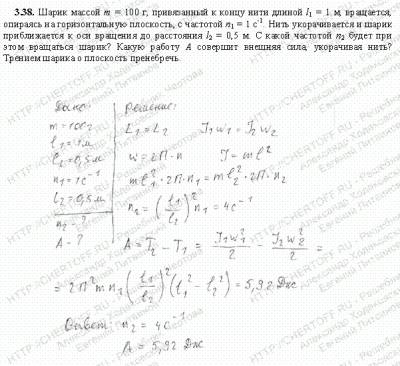 3.38. Шарик массой m = 100 г, привязанный к концу нити длиной l₁ = 1 м, вращается,
опираясь на горизонтальную плоскость, с частотой n₁ = 1 с⁻¹. Нить укорачивается и шарик
приближается к оси вращения до расстояния l₂ = 0,5 м. С какой частотой n₂ будет при
этом вращаться шарик? Какую работу A совершит внешняя сила, укорачивая нить?
Трением шарика о плоскость пренебречь.
Дано: Решение:
m=100г L₁ = L₂ J₁w₁ = J₂w₂
l₁=1м
l₂=0,5м w = 2П·n J = ml²
n₁=1c⁻¹ ml₁²·2П·n₁ = ml₂²·2П·n₂
l₂=0,5м
n₂-? n₂ = (l₁/l₂)² n₁ = 4c⁻¹
A-? A = T₂ - T₁ = J₁w₁²/2 - J₂w₂²/2 =
= 2П²mn₁(l₁/l₂)²(l₁² - l₂²) = 5,92 Дж
Ответ: n₂ = 4c⁻¹
A = 5,92 Дж
HTTP://CHERTOFF.RU - Решебник
Александр Ходыкин
Евгений Питолин